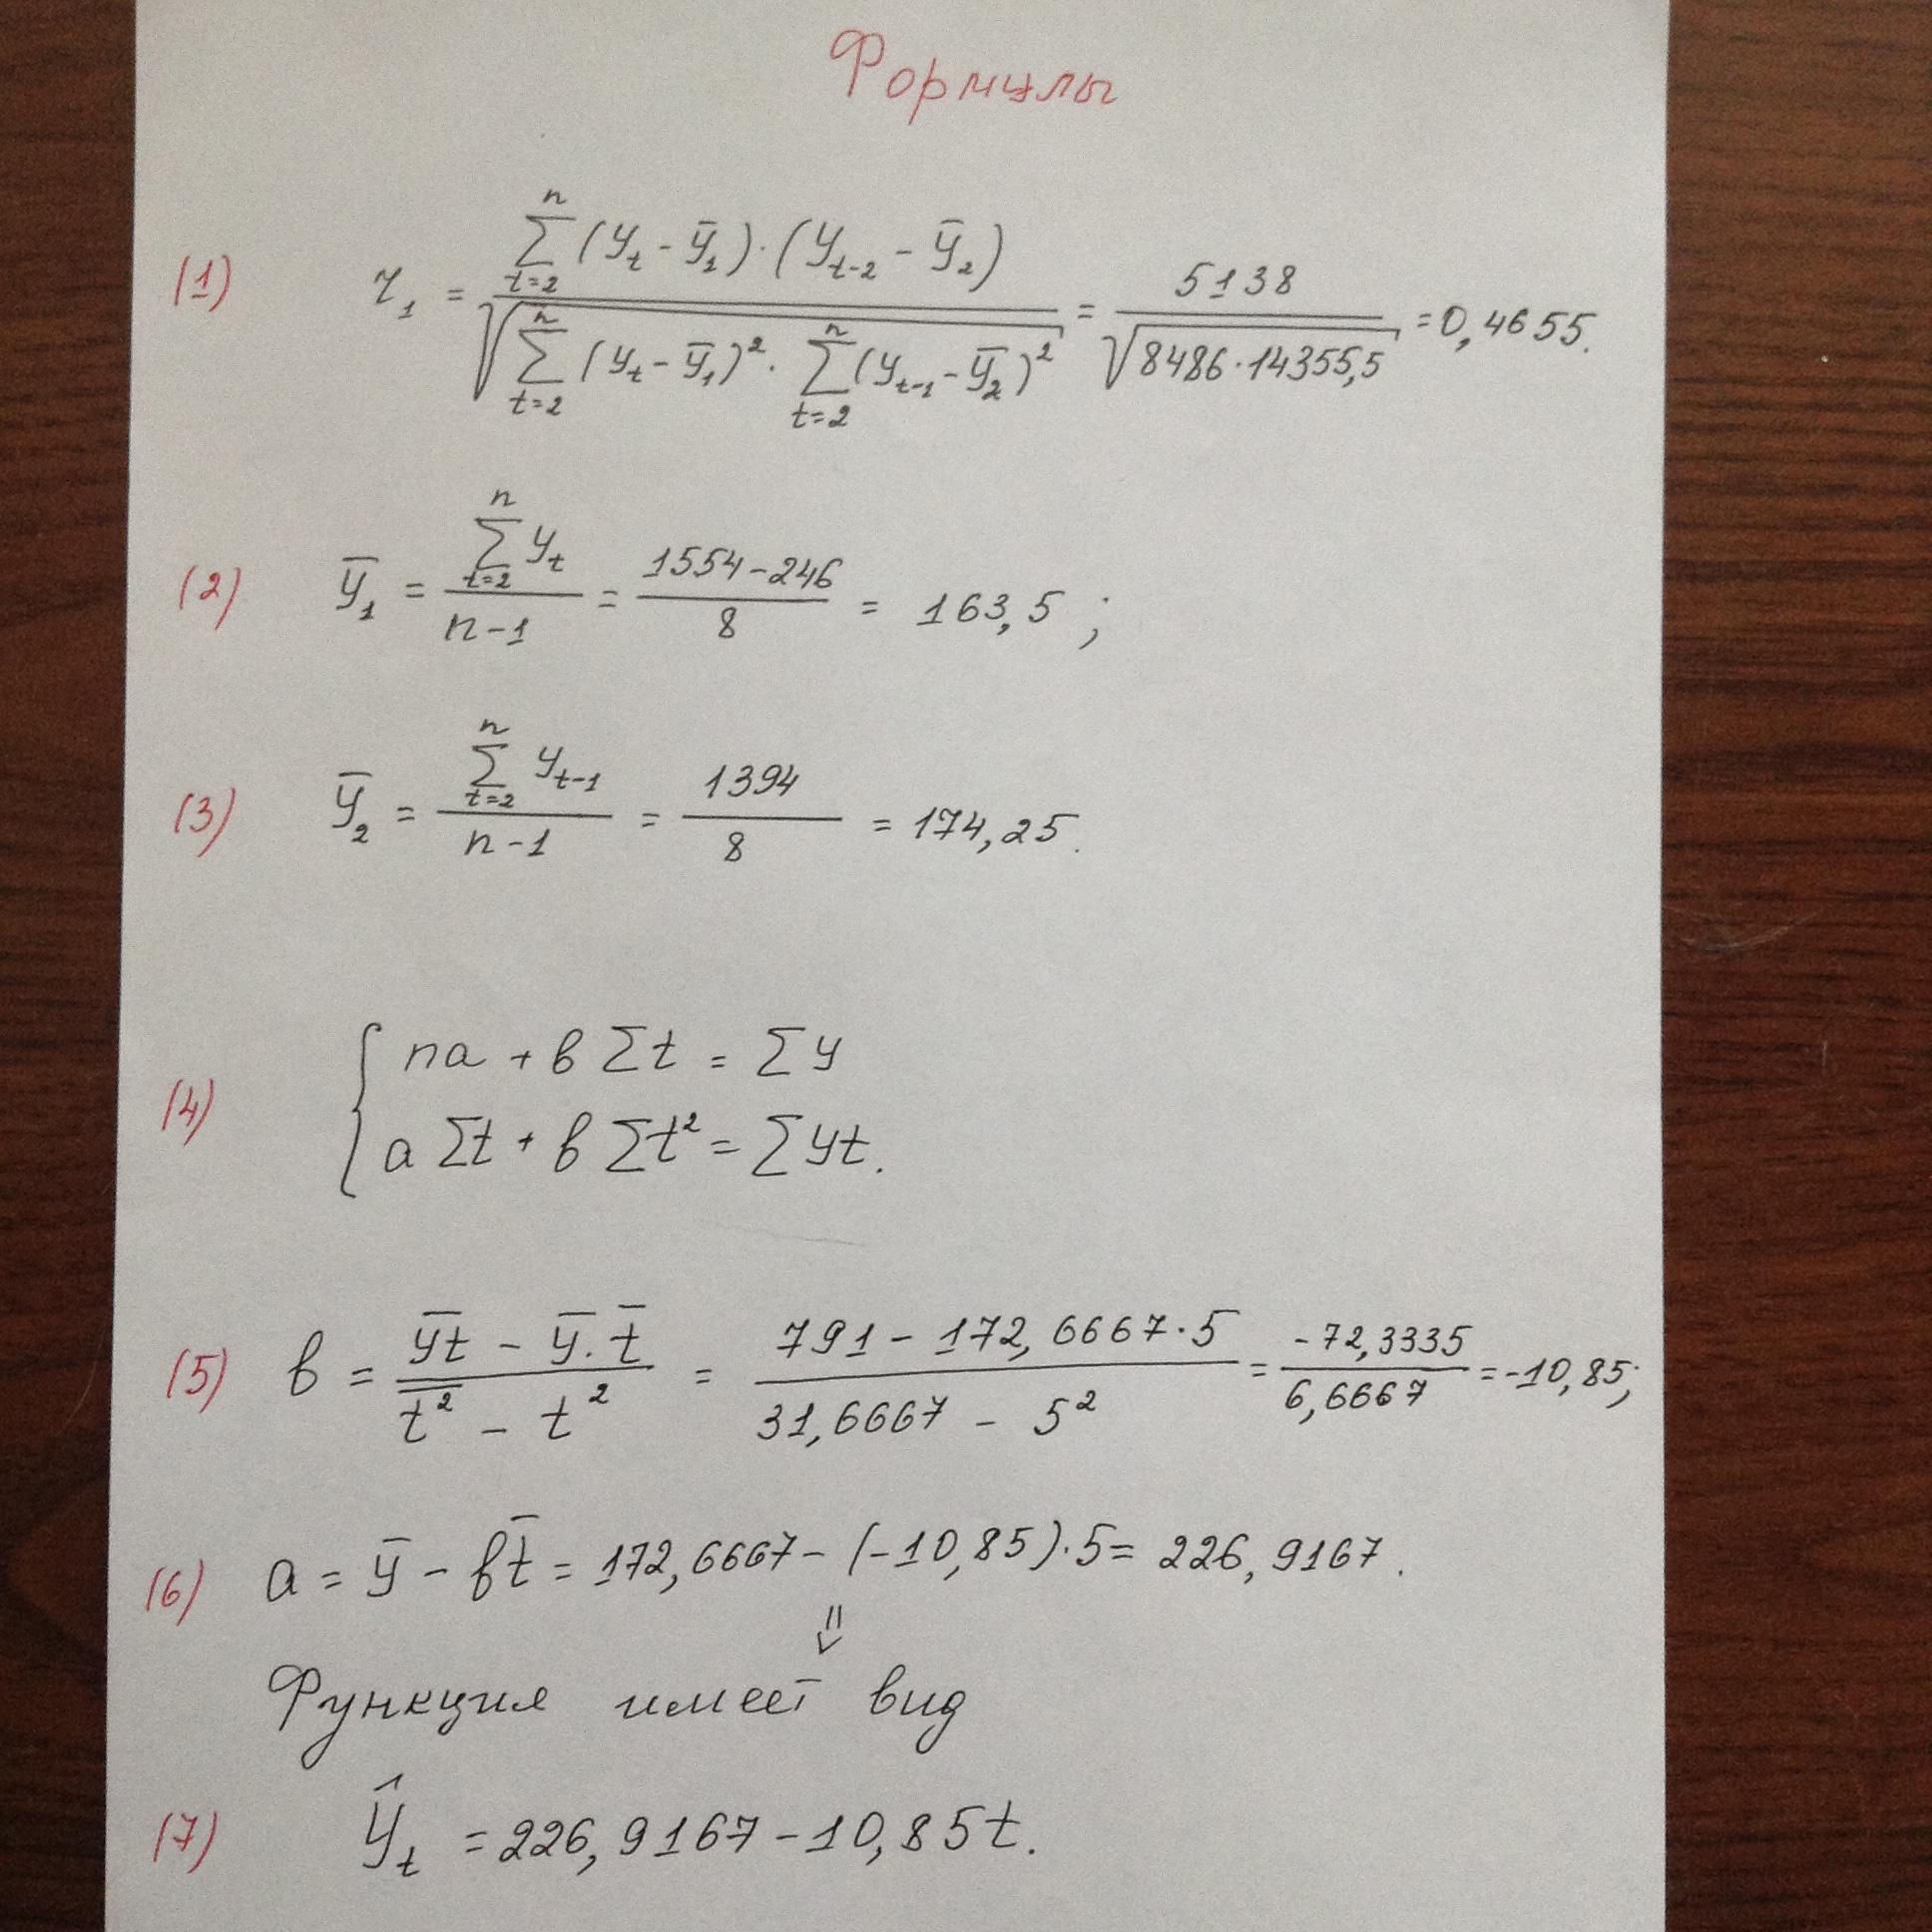 Формулы
(1) r₁ = \frac{\sum_{t=2}^{n} (y_t - \bar{y}_1) \cdot (y_{t-2} - \bar{y}_2)}{\sqrt{\sum_{t=2}^{n} (y_t - \bar{y}_1)^2 \cdot \sum_{t=2}^{n} (y_{t-1} - \bar{y}_2)^2}} = \frac{5138}{\sqrt{8486 \cdot 14355,5}} = 0,4655.
(2) \bar{y}_1 = \frac{\sum_{t=2}^{n} y_t}{n-1} = \frac{1554-246}{8} = 163,5 ;
(3) \bar{y}_2 = \frac{\sum_{t=2}^{n} y_{t-1}}{n-1} = \frac{1394}{8} = 174,25.
(4) { na + в ∑t = ∑y
a ∑t + в ∑t² = ∑yt.
(5) в = \frac{\overline{yt} - \bar{y} . \bar{t}}{\overline{t^2} - t^2} = \frac{791 - 172,6667 \cdot 5}{31,6667 - 5^2} = \frac{-72,3335}{6,6667} = -10,85;
(6) a = \bar{y} - в\bar{t} = 172,6667 - (-10,85)·5 = 226,9167.
⇓
Функция имеет вид
(7) \hat{y}_t = 226,9167 - 10,85t.